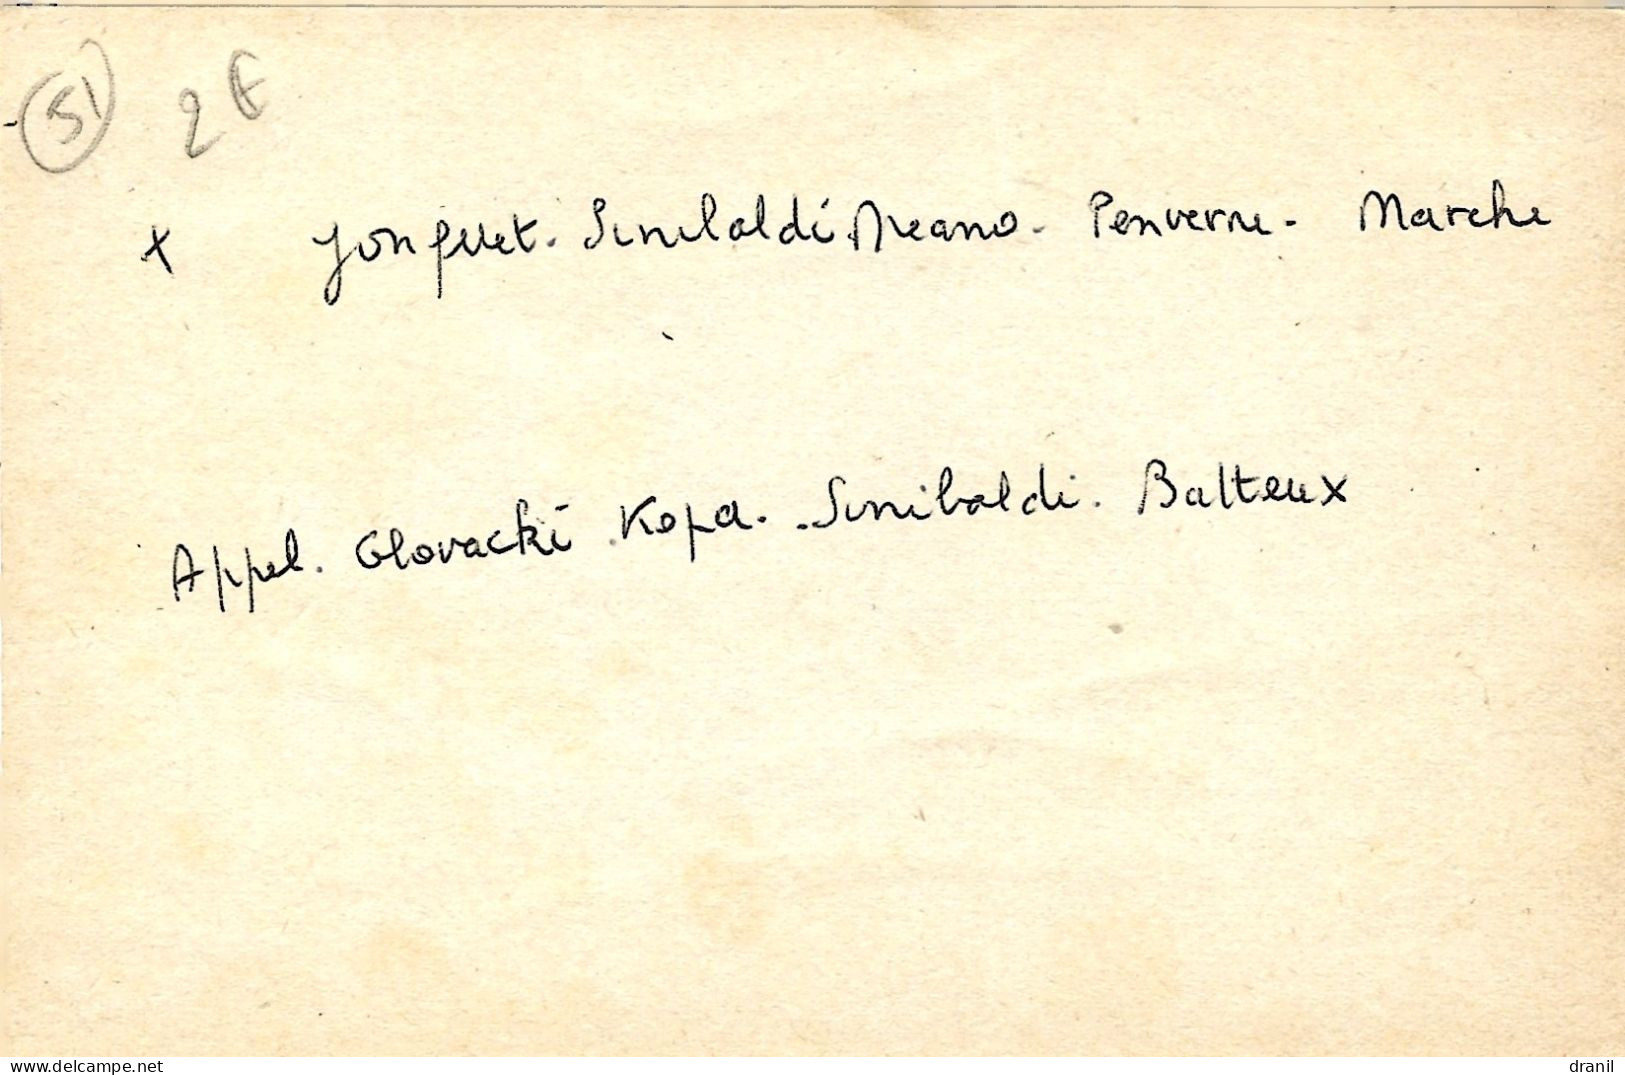 51 2 €
x Jonquet. Sinibaldi. Meano. Penverne. Marche
Appel. Glovacki Kopa. Sinibaldi. Batteux
delcampe.net
dranil